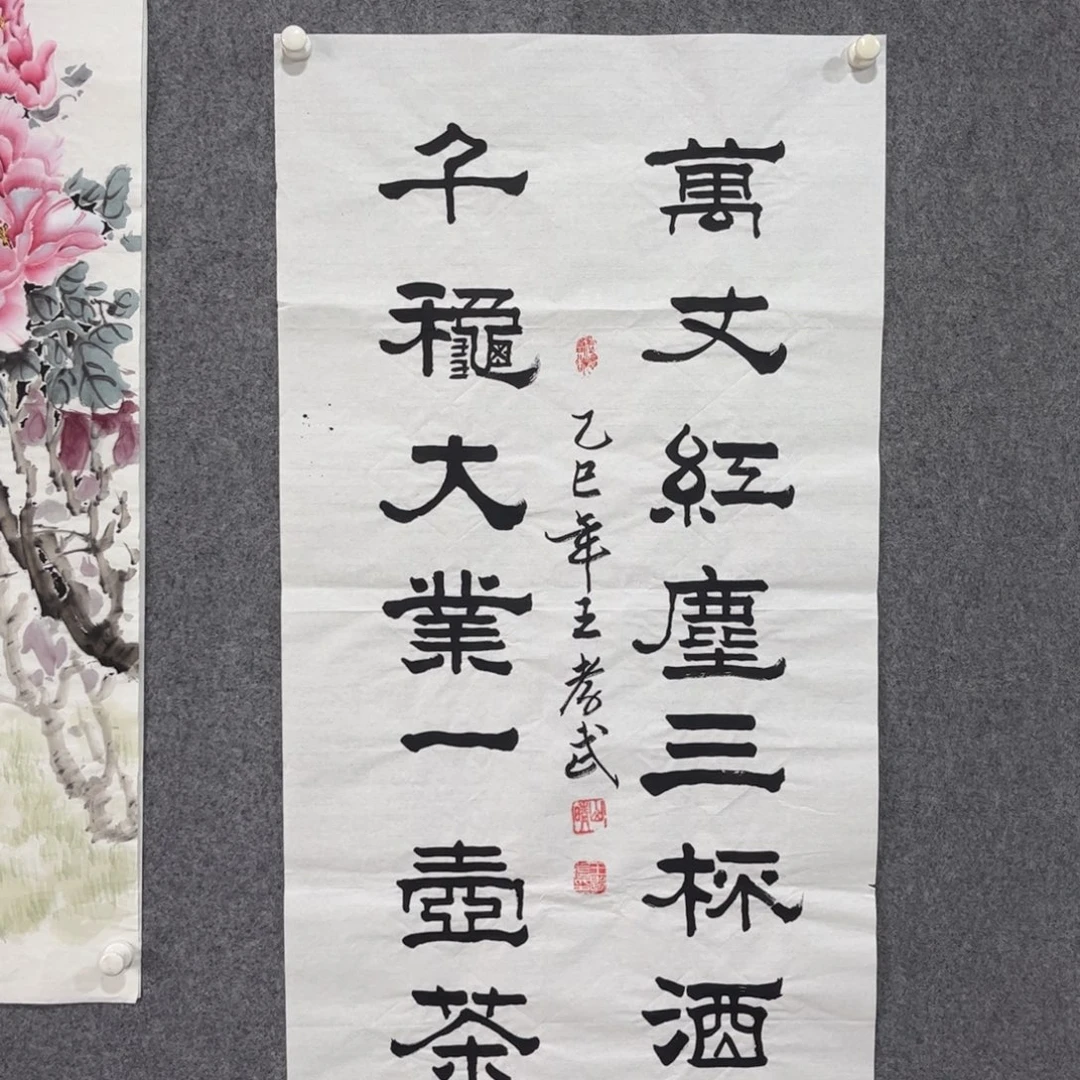 萬丈紅塵三杯酒
千龝大業一壺茶
乙巳年王孝武